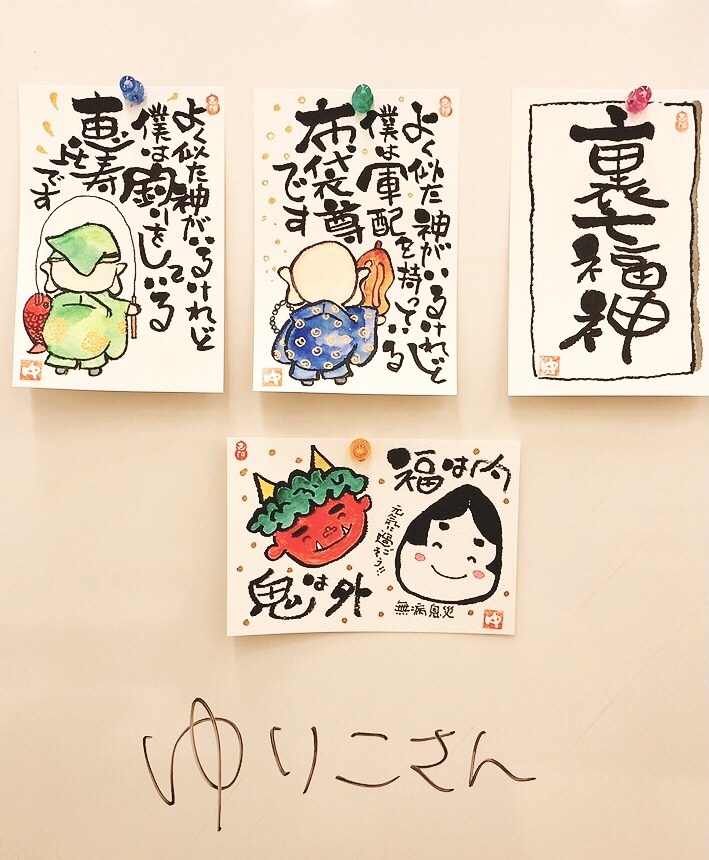 裏七福神
よく似た神がいるけれど
僕は軍配を持っている
布袋尊
です
よく似た神がいるけれど
僕は釣りをしている
恵比寿
です
福は内
元気に過ごそう!!
無病息災
鬼は外
ゆ
ゆ
ゆ
ゆ
ゆりこさん